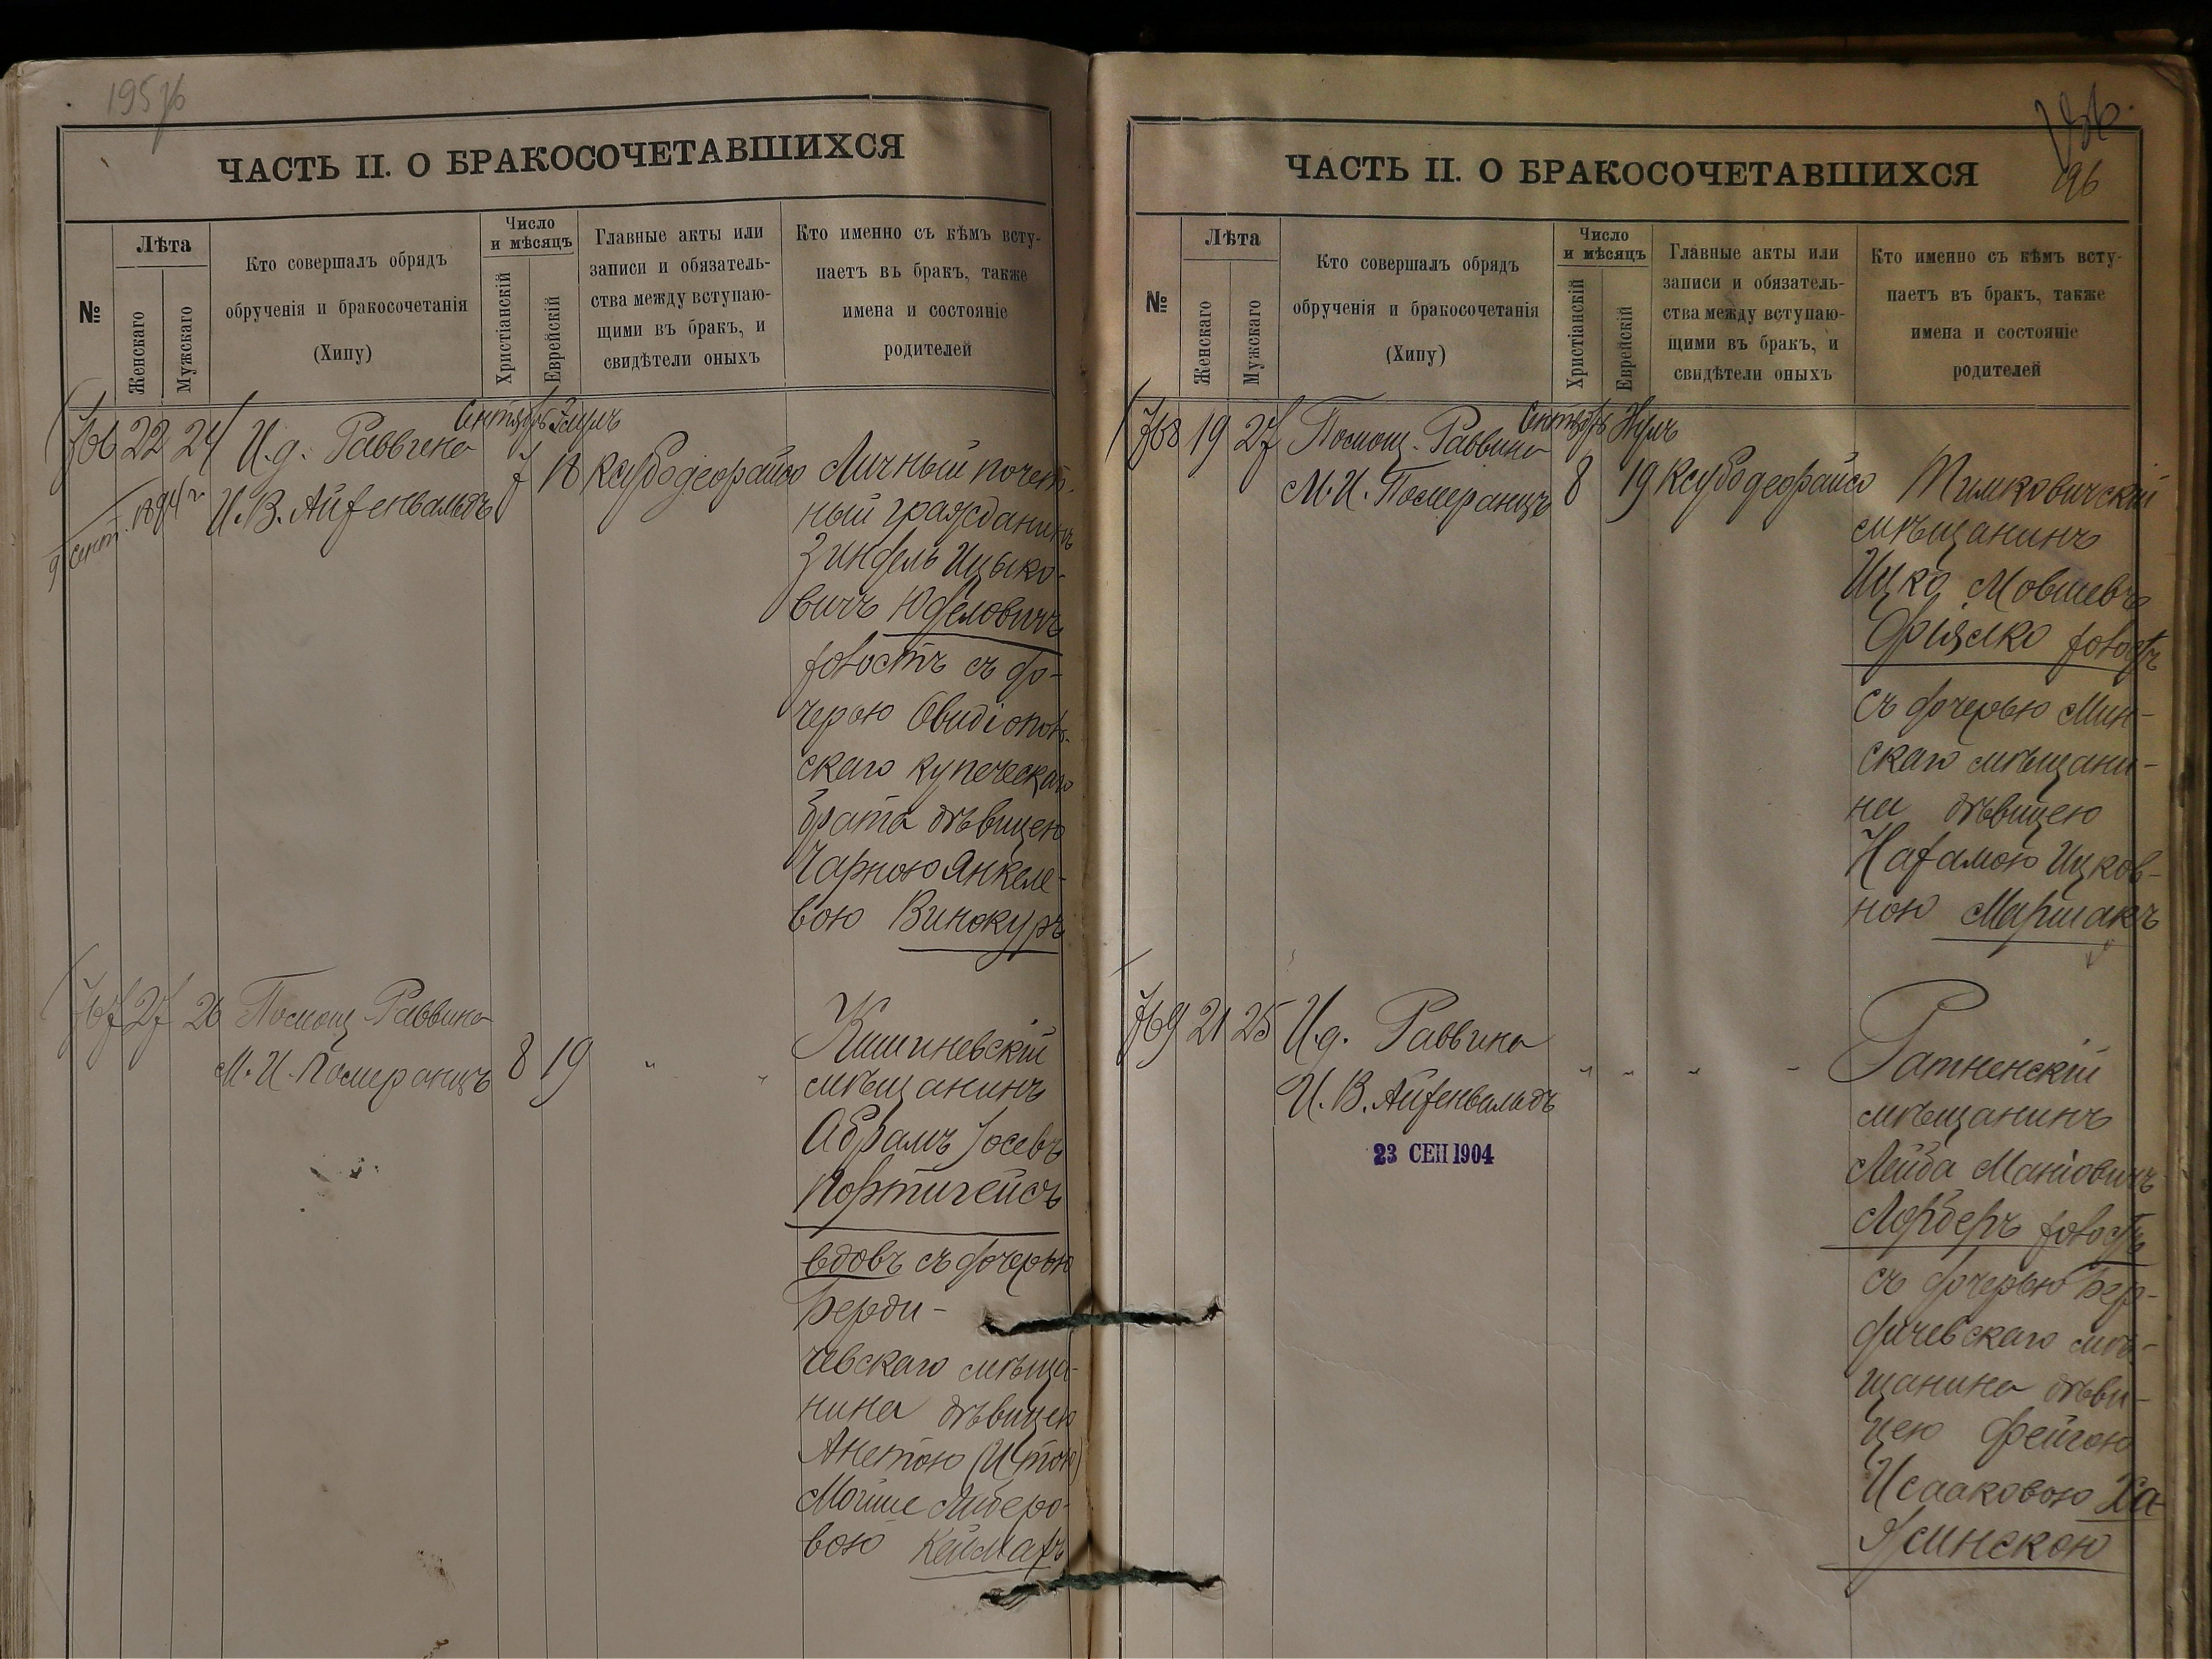 195
ЧАСТЬ II. О БРАКОСОЧЕТАВШИХСЯ
№
Лѣта
Женскаго
Мужскаго
Кто совершалъ обрядъ
обрученія и бракосочетанія
(Хипу)
Число
и мѣсяцъ
Христіанскій
Еврейскій
Главные акты или
записи и обязатель-
ства между вступаю-
щими въ бракъ, и
свидѣтели оныхъ
Кто именно съ кѣмъ всту-
паетъ въ бракъ, также
имена и состояніе
родителей
Сентябрь Элулъ
766 22 24 И.д. Раввина 7 18 Ксубодеорайсо Личный почет-
И.В. Айзенвальдъ
ный гражданинъ
Зиндель Ицько-
вичъ Юделовичъ
холостъ съ до-
черью Овидіополь-
скаго купеческаго
брата дѣвицею
Чарною Янкеле-
вою Винокуръ
767 27 26 Помощ. Раввина
М.И. Померанцъ 8 19 " "
Кишиневскій
мѣщанинъ
Абрамъ Іосевъ
Портигейсъ
вдовъ съ дочерью
Берди-
чевскаго мѣща-
нина дѣвицею
Анетою (Итою)
Мойше Либеро-
вою
196
ЧАСТЬ II. О БРАКОСОЧЕТАВШИХСЯ
№
Лѣта
Женскаго
Мужскаго
Кто совершалъ обрядъ
обрученія и бракосочетанія
(Хипу)
Число
и мѣсяцъ
Христіанскій
Еврейскій
Главные акты или
записи и обязатель-
ства между вступаю-
щими въ бракъ, и
свидѣтели оныхъ
Кто именно съ кѣмъ всту-
паетъ въ бракъ, также
имена и состояніе
родителей
Сентябрь
768 19 27 Помощ. Раввина
М.И. Померанцъ 8 19 Ксубодеорайсо Тимковичскій
мѣщанинъ
Ицко Мовшевъ
холостъ
съ дочерью Мин-
скаго мѣщани-
на дѣвицею
Нахамою Ицков-
ною Маршакъ
769 21 25 И.д. Раввина
И.В. Айзенвальдъ " " " "
23 СЕН 1904
Ратненскій
мѣщанинъ
Лейба Маніовичъ
Лорберъ холостъ
съ дочерью Бер-
дичевскаго мѣ-
щанина дѣви-
цею Фейгою
Исааковою Ха-